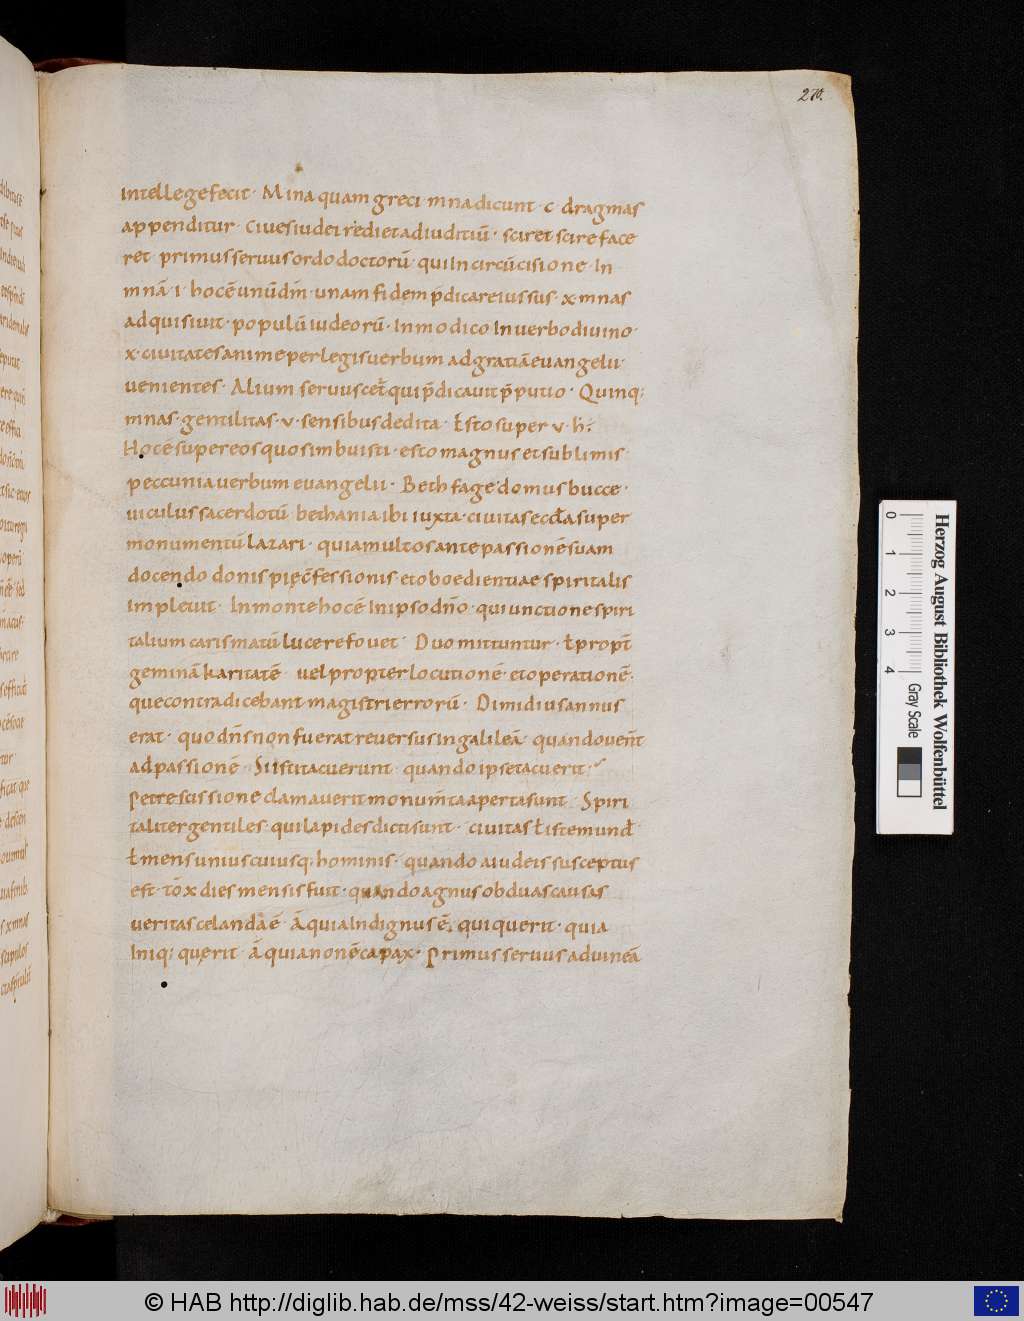 270.
intellege fecit · Mina quam greci mna dicunt · c · dragmas
appenditur · Ciues iudei rediet ad iuditiū · sciret scire face
ret primus seruus ordo doctorū · qui In circūcisione · In
mnā · i · hoc ē unū dm̄ · unam fidem p̄dicare iussus · x · mnas
adquisiuit · populū iudeorū · In modico In uerbo diuino ·
x · ciuitates anime per legis uerbum ad gratiā euangelii ·
uenientes · Alium seruus cet̄ qui p̄dicauit p̄putio · Quinq;
mnas · gentilitas · v · sensibus dedita · Esto super v · h̄;
Hoc ē super eos quos imbuisti · esto magnus et sublimis
peccunia uerbum euangelii · Bethfage domus bucce ·
uiculus sacerdotū bethania ibi iuxta · ciuitas super
monumentū lazari · quia multos ante passionē suam
docendo donis pię c̄fessionis et oboedientiae spiritalis
impleuit · In monte hoc ē In ipso dn̄o · qui unctione spiri
talium carismatū lucere fouet · Duo mittuntur · ł propt̄
geminā karitatē uel propter locutionē · et operationē ·
que contradicebant magistri errorū · Dimidius annus
erat · quo dn̄s non fuerat reuersus in galileā quando uen̄t
ad passionē · Si isti tacuerunt quando ipse tacuerit ·
petre scissione clamauerit monum̄ta aperta sunt · Spiri
taliter gentiles qui lapides dicti sunt · ciuitas ł iste mund̄
ł mens unius cuiusq; hominis · quando a iudeis susceptus
est · x dies mensis fuit · quando agnus ob duas causas
ueritas celanda ē · quia Indignus ē · qui querit · quia
Iniq; quęrit · quia non ē capax · Primus seruus ad uineā
Herzog August Bibliothek Wolfenbüttel
0 1 2 3 4 Gray Scale
© HAB http://diglib.hab.de/mss/42-weiss/start.htm?image=00547